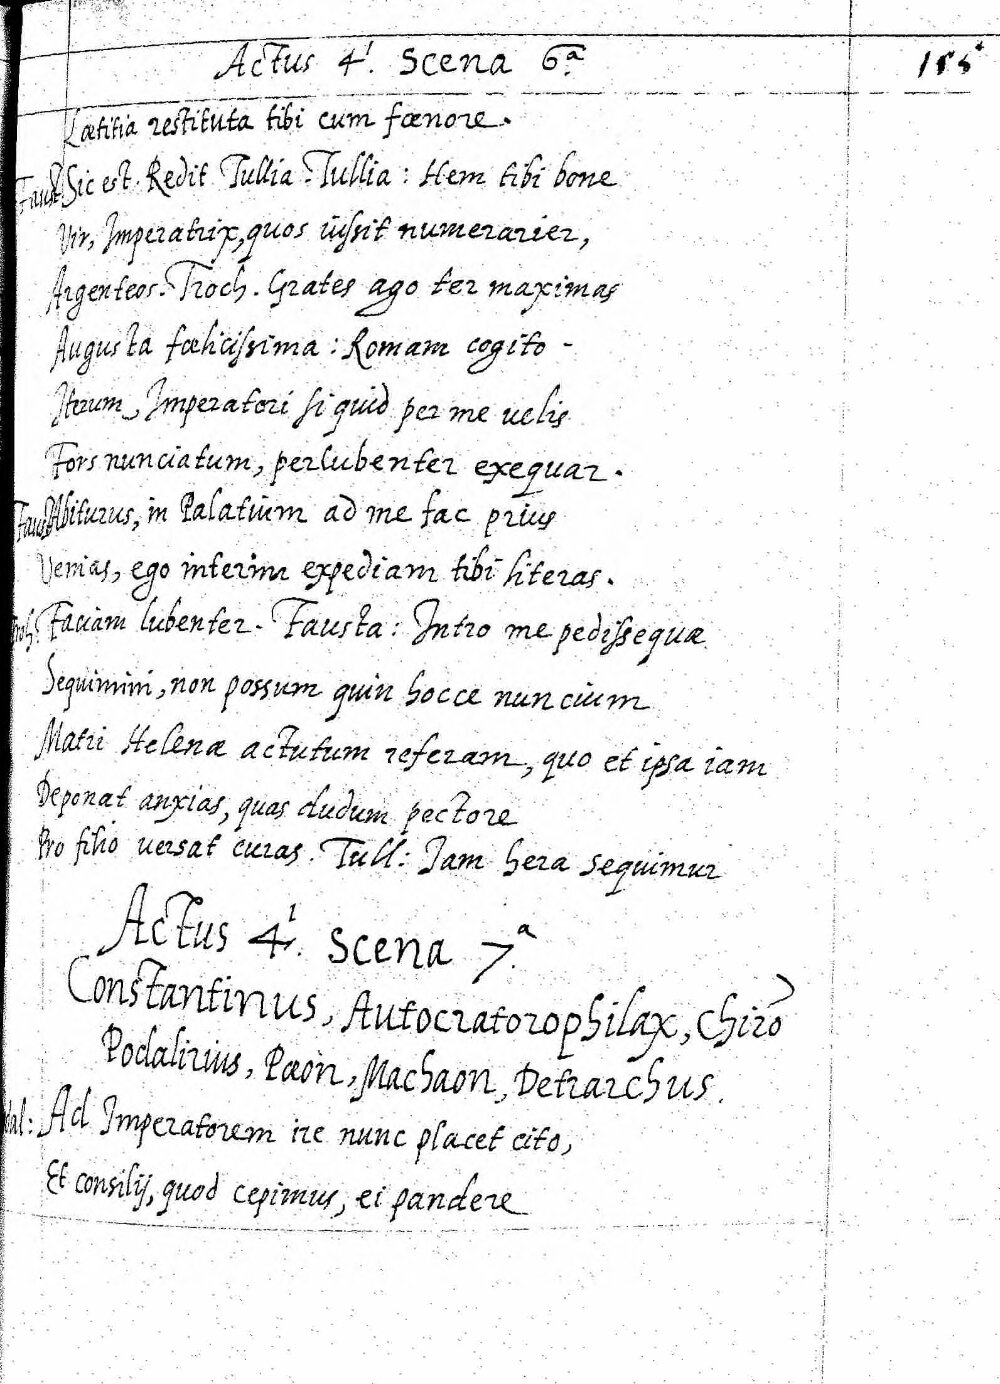 Actus 4ⁱ. Scena 6ᵃ 155
Lætitia restituta tibi cum fœnore.
Faust Sic est. Redit Tullia. Tullia: Hem tibi bone
Vir, Imperatrix, quos iussit numerarier,
Argenteos. Troch. Grates ago ter maximas
Augusta fœlicissima: Romam cogito -
Iterum, Imperatori si quid per me velis
Fors nunciatum, perlubenter exequar.
Faust Abiturus, in Palatium ad me fac prius
Venias, ego interim expediam tibi literas.
Troch: Faciam lubenter. Fausta: Intro me pedissequæ
Sequimini, non possum quin hocce nuncium
Matri Helenæ actutum referam, quo et ipsa iam
Deponat anxias, quas dudum pectore
Pro filio versat curas. Tull: Iam hera sequimur
Actus 4ⁱ. Scena 7.ᵃ
Constantinus, Autocratorophilax, Chirō
Podalirius, Pæon, Machaon, Detrarchus.
dal: Ad Imperatorem ire nunc placet cito,
Et consilij, quod cepimus, ei pandere